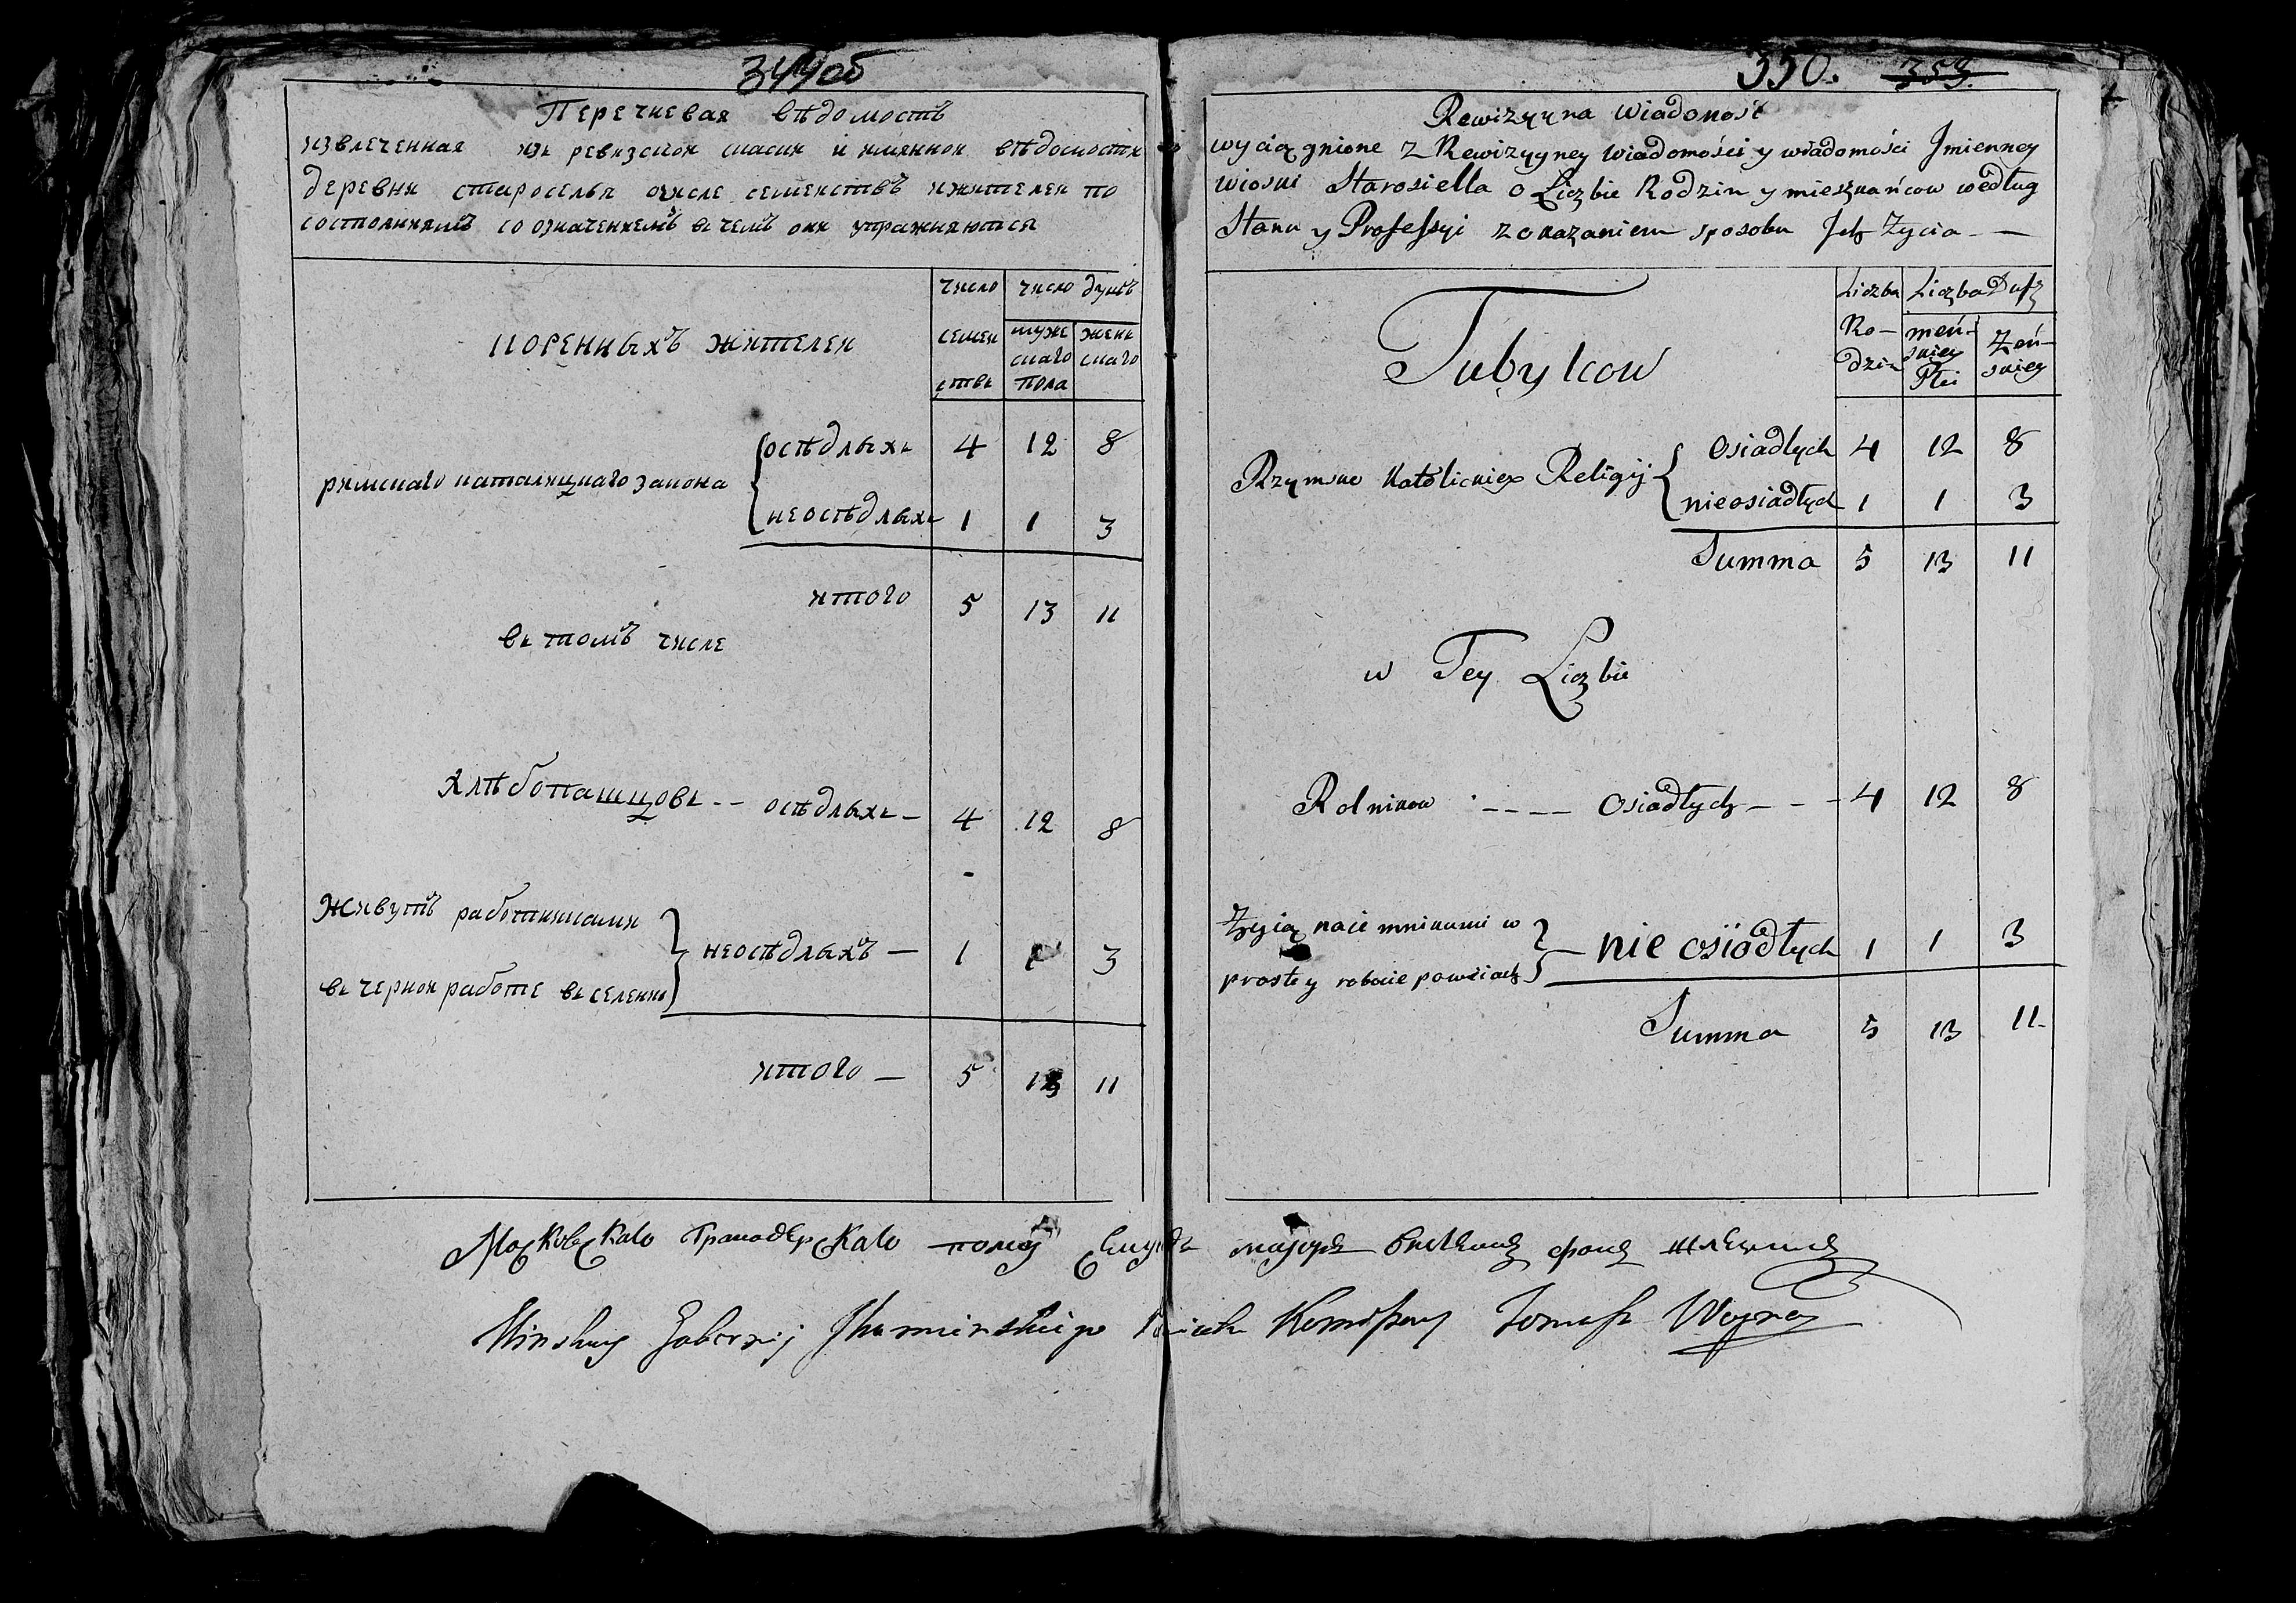 Перечневая вѣдомостъ
извлеченная изъ ревизской скаски и имянной вѣдомости
деревни староселья очисле семействъ ижителей по
состояниямъ со означениемъ въ чемъ они упражняются
коренныхъ жителей
число семей ствъ
число душъ
муже скаго пола
женс скаго
римскаго каталицкаго закона
осѣдлыхъ 4 12 8
неосѣдлыхъ 1 1 3
итого 5 13 11
въ томъ числе
хлѣбопашцовъ -- осѣдлыхъ — 4 12 8
живутъ работниками
въ черной работе въ селении
неосѣдлыхъ — 1 1 3
итого — 5 13 11
350. 353.
Rewizyyna Wiadomość
wyciągnione z Rewizyyney wiadomości y wiadomości Jmienney
wioski Starosiella o Liczbie Rodzin y mieszkańcow według
Stanu y Professyi z okazaniem sposobu Jch Życia —
Tubylcow
Liczba Ro- dzin
Liczba Dusz
męń- skiey Płci
Żeń- skiey
Rzymsko Katolickiey Religij
Osiadłych 4 12 8
nieosiadłych 1 1 3
Summa 5 13 11
w Tey Liczbie
Rolnikow ---- Osiadłych --- 4 12 8
Żyią naiemnikami w
prostey robocie powsiach
— nie osiadłych 1 1 3
Summa 5 13 11
Московскаго Гранодерскаго полку
Minskiey Gubernij Jhumenskiego Tomasz